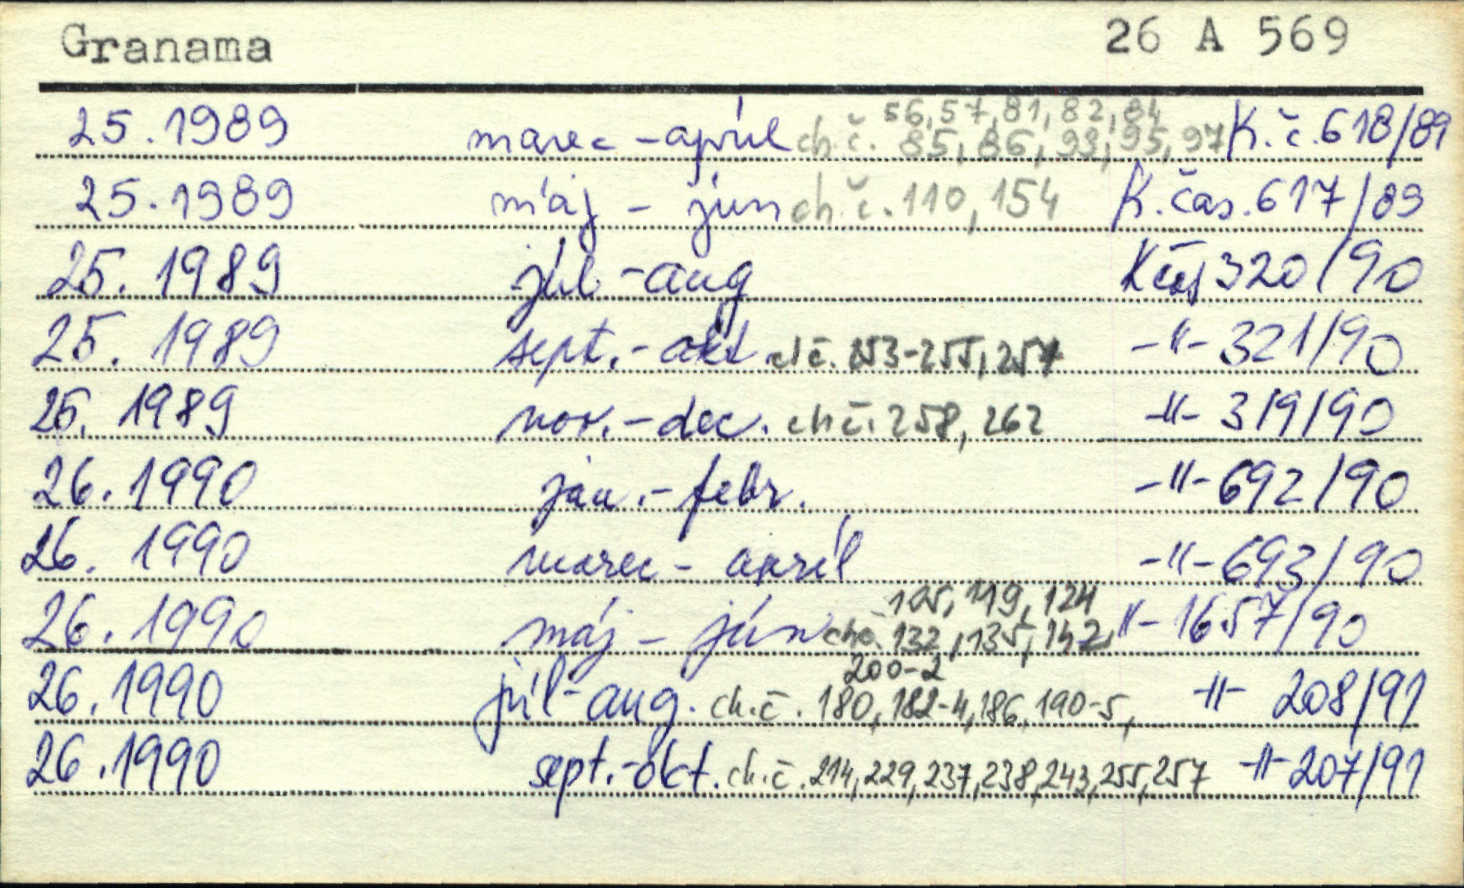 Granama 26 A 569
25.1989 marec - apríl ch.č. 56,57,81,82,84 85,86,93,95,97 K.č.618/89
25.1989 máj - jún ch.č.110,154 K.čas.617/89
25.1989 júl - aug Kčas 320/90
25.1989 sept.- okt ch č. 253-255,257 -"- 321/90
25.1989 nov.- dec. ch č. 258,262 -"- 319/90
26.1990 jan.- febr. -"- 692/90
26.1990 marec - apríl -"- 693/90
26.1990 máj - jún chč. 105,119,124 132,135,142, -"- 1657/90
26.1990 júl- aug. ch.č. 180,182-4,186,190-5, 200-2 -"- 208/91
26.1990 sept.-okt. ch.č.214,229,237,238,243,255,257 -"- 207/91